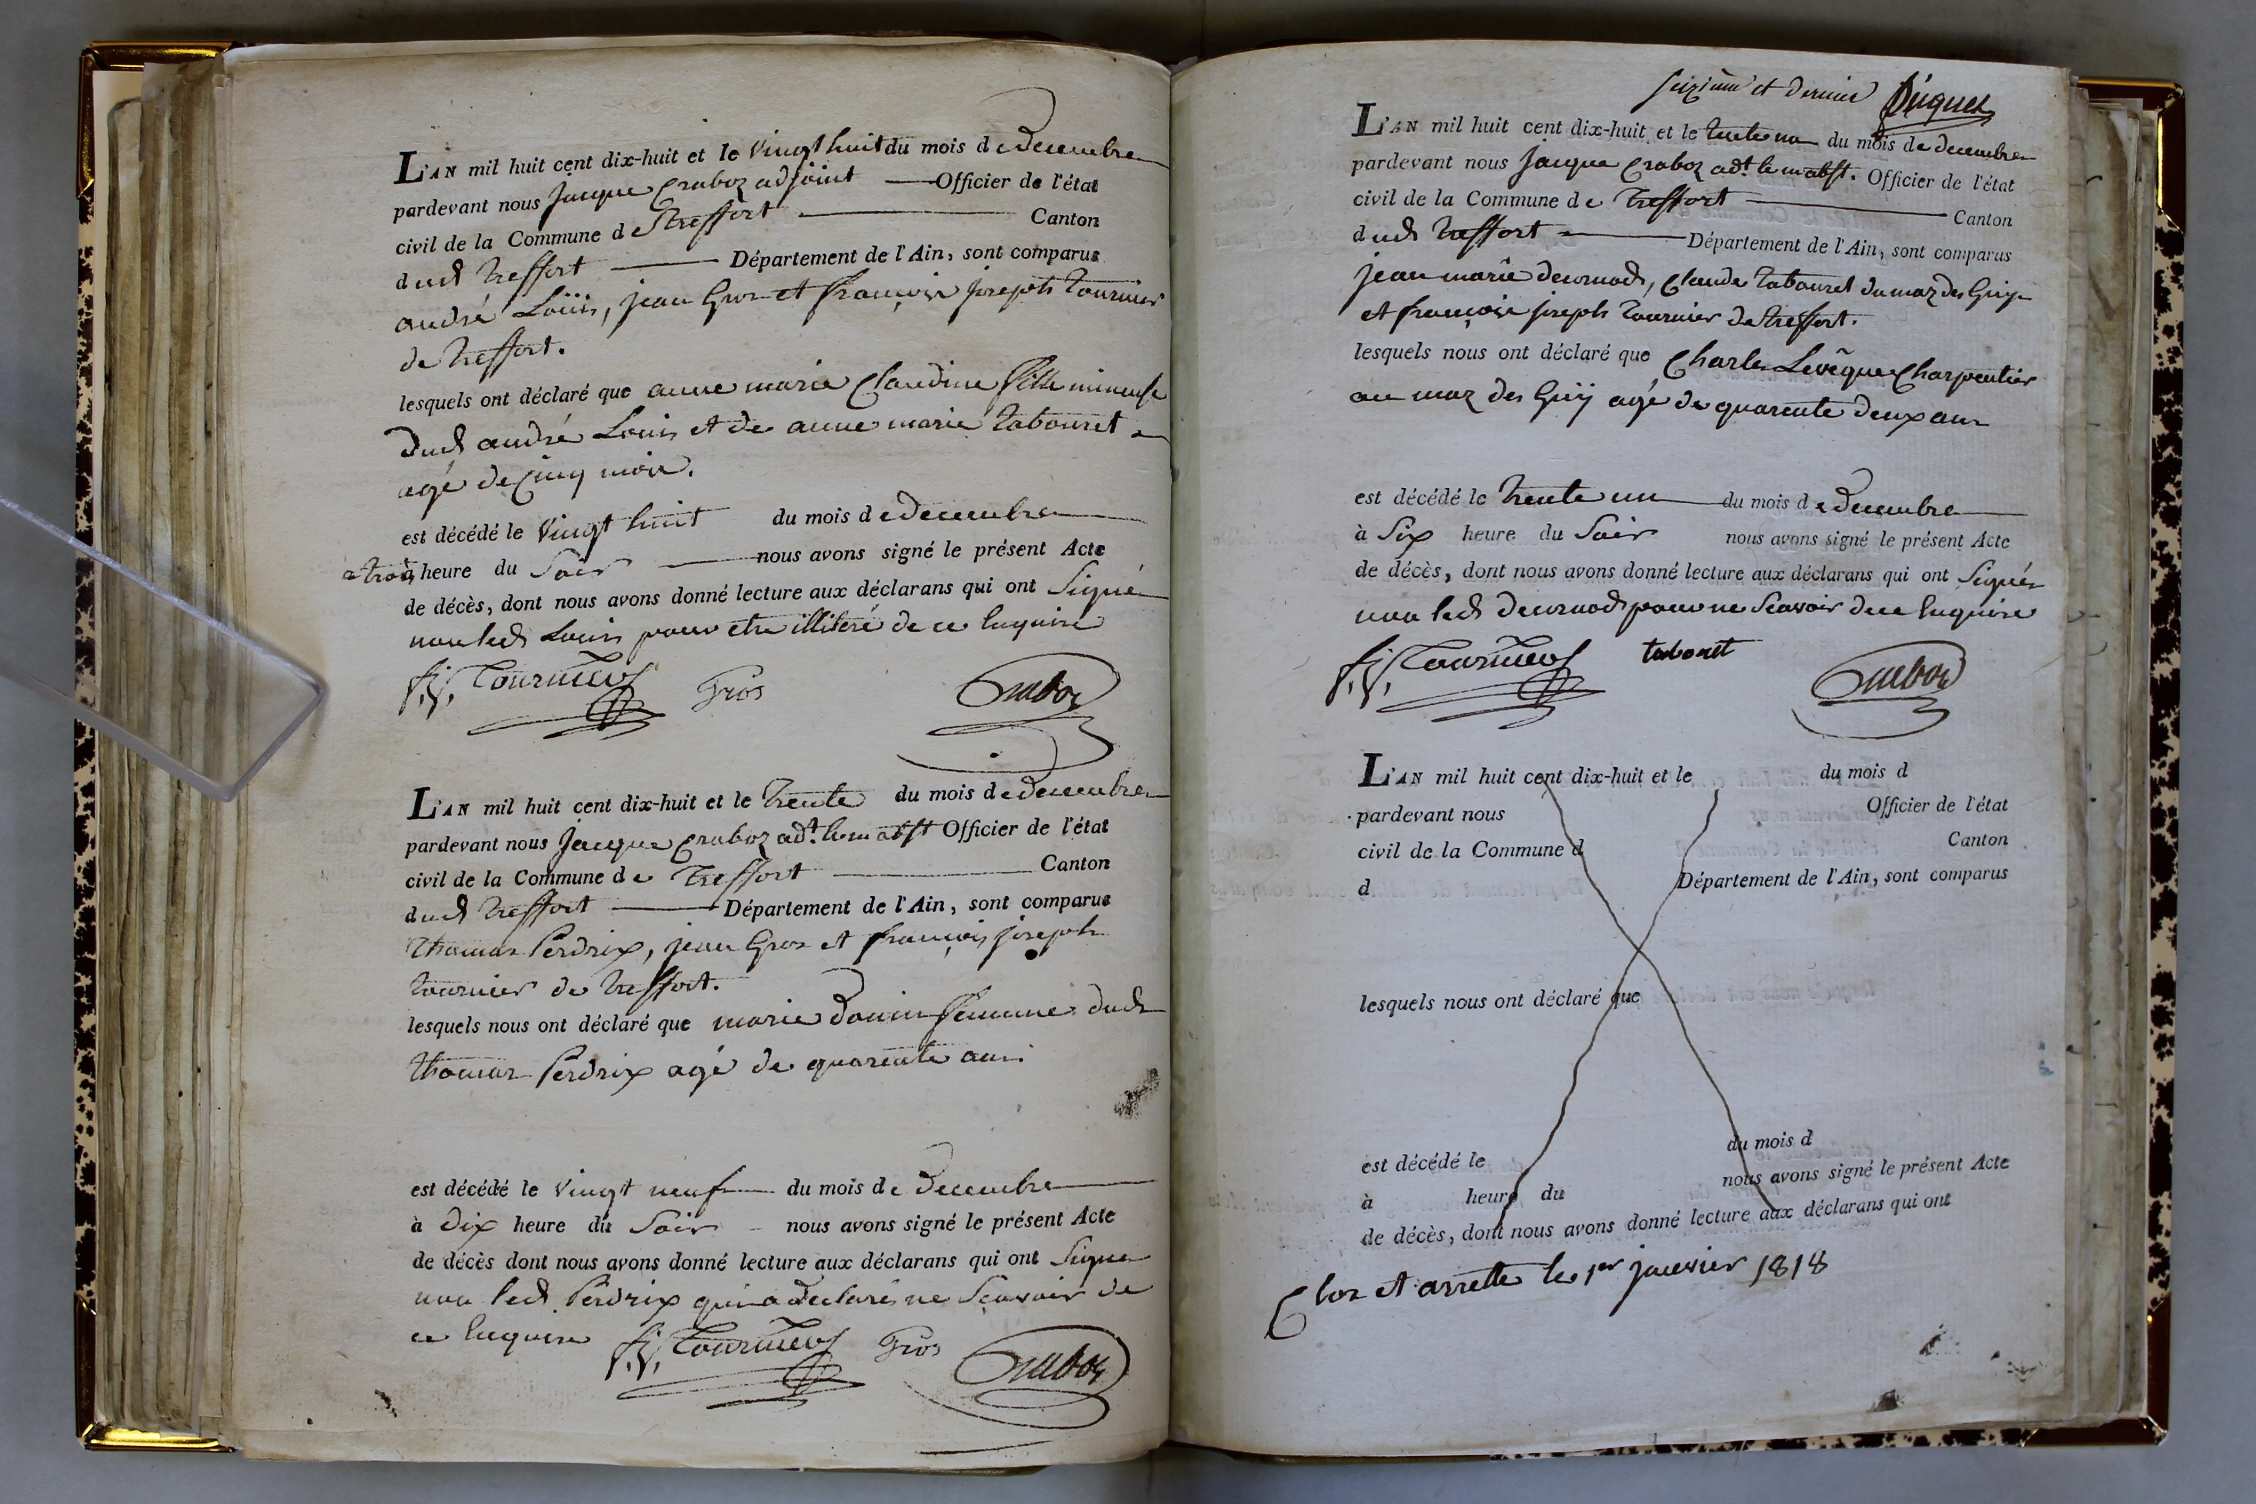 L'AN mil huit cent dix-huit et le vingt huit du mois de Decembre
pardevant nous Jacque Craboz adjoint Officier de l'état
civil de la Commune de Treffort Canton
dud Treffort Département de l'Ain, sont comparus
andré Louis, jean Gros et françois joseph Tournier
de Treffort.
lesquels ont déclaré que anne marie Claudine fille mineuse
Dud andré Louis et de anne marie Tabouret
agé de Cinq mois.
est décédé le vingt huit du mois de Decembre
a trois heure du Soir nous avons signé le présent Acte
de décès, dont nous avons donné lecture aux déclarans qui ont Signé
non led Louis pour etre illiteré de ce Enquire
f. j. Tournier Gros Craboz
L'AN mil huit cent dix-huit et le trente du mois de Decembre
pardevant nous Jacque Craboz adt. le m abst Officier de l'état
civil de la Commune de Treffort Canton
dud Treffort Département de l'Ain, sont comparus
Thomas Perdrix, jean Gros et françois joseph
Tournier de Treffort.
lesquels nous ont déclaré que marie femme dud
Thomas Perdrix agé de quarente ans.
est décédé le vingt neuf du mois de Decembre
à dix heure du Soir nous avons signé le présent Acte
de décès dont nous avons donné lecture aux déclarans qui ont Signe
non led Perdrix qui a declaré ne Scavoir de
ce Enquire f. j. Tournier Gros Craboz
seizieme et dernier
L'AN mil huit cent dix-huit et le trente un du mois de decembre
pardevant nous Jacque Craboz adt. le m abst. Officier de l'état
civil de la Commune de Treffort Canton
dud Treffort Département de l'Ain, sont comparus
jean marie Claude Tabouret du maz des Guy
et françois joseph Tournier de Treffort.
lesquels nous ont déclaré que Charles Levêque Charpentier
au maz des Guÿ agé de quarente deux ans
est décédé le trente un du mois de Decembre
à Six heure du Soir nous avons signé le présent Acte
de décès, dont nous avons donné lecture aux déclarans qui ont Signés
non led pour ne Scavoir de ce Enquire
f. j. Tournier tabouret Craboz
L'AN mil huit cent dix-huit et le du mois d
pardevant nous Officier de l'état
civil de la Commune d Canton
d Département de l'Ain, sont comparus
lesquels nous ont déclaré que
est décédé le du mois d
à heure du nous avons signé le présent Acte
de décès, dont nous avons donné lecture aux déclarans qui ont
Clos et arretté le 1er janvier 1818